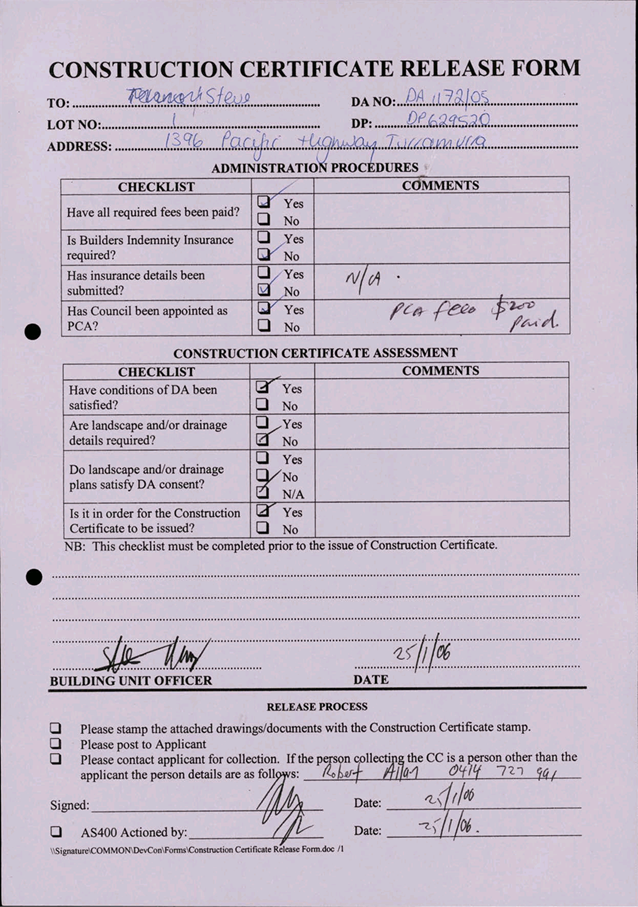 CONSTRUCTION CERTIFICATE RELEASE FORM
TO: Steve DA NO: DA 1172/05
LOT NO: 1 DP: DP629520
ADDRESS: 1396 Pacific Highway Turramurra
ADMINISTRATION PROCEDURES
CHECKLIST COMMENTS
Have all required fees been paid? Yes
No
Is Builders Indemnity Insurance required? Yes
No
Has insurance details been submitted? Yes N/A
No
Has Council been appointed as PCA? Yes PCA fees $200
No paid.
CONSTRUCTION CERTIFICATE ASSESSMENT
CHECKLIST COMMENTS
Have conditions of DA been satisfied? Yes
No
Are landscape and/or drainage details required? Yes
No
Do landscape and/or drainage plans satisfy DA consent? Yes
No
N/A
Is it in order for the Construction Certificate to be issued? Yes
No
NB: This checklist must be completed prior to the issue of Construction Certificate.
25/1/06
BUILDING UNIT OFFICER DATE
RELEASE PROCESS
Please stamp the attached drawings/documents with the Construction Certificate stamp.
Please post to Applicant
Please contact applicant for collection. If the person collecting the CC is a person other than the
applicant the person details are as follows: Robert Allan 0414 727 991
Signed: Date: 25/1/06
AS400 Actioned by: Date: 25/1/06.
\\Signature\COMMON\DevCon\Forms\Construction Certificate Release Form.doc /1